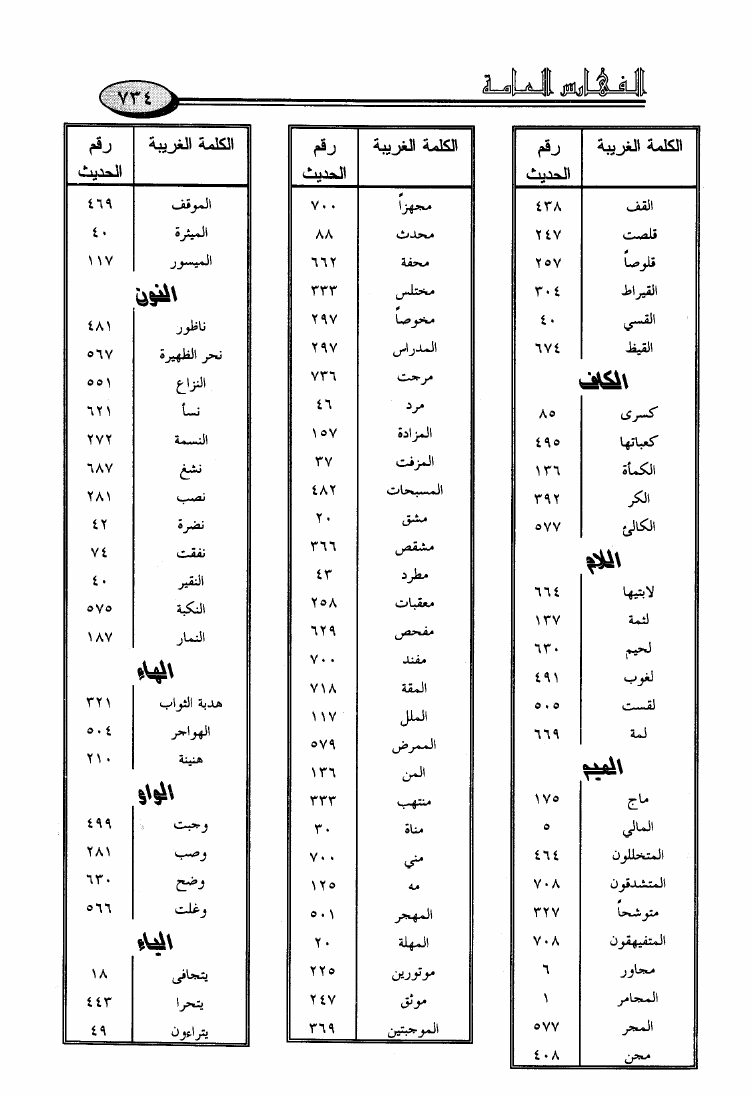 الفهارس العامة
٧٣٤
الكلمة الغريبة رقم الحديث
القف ٤٣٨
قلصت ٢٤٧
قلوصاً ٢٥٧
القيراط ٣٠٤
القسي ٤٠
القيظ ٦٧٤
الكاف
كسرى ٨٥
كعباتها ٤٩٥
الكمأة ١٣٦
الكر ٣٩٢
الكالئ ٥٧٧
اللام
لابتيها ٦٦٤
لثمة ١٣٧
لحيم ٦٣٠
لغوب ٤٩١
لقست ٥٠٥
لمة ٦٦٩
الميم
ماج ١٧٥
المالي ٥
المتخللون ٤٦٤
المتشدقون ٧٠٨
متوشحاً ٣٢٧
المتفيهقون ٧٠٨
محاور ٦
المجامر ١
المجر ٥٧٧
مجن ٤٠٨
الكلمة الغريبة رقم الحديث
مجهزاً ٧٠٠
محدث ٨٨
محفة ٦٦٢
مختلس ٣٣٣
مخوصاً ٢٩٧
المدراس ٢٩٧
مرجت ٧٣٦
مرد ٤٦
المزادة ١٥٧
المزفت ٣٧
المسبحات ٤٨٢
مشق ٢٠
مشقص ٣٦٦
مطرد ٤٣
معقبات ٢٥٨
مفحص ٦٢٩
مفند ٧٠٠
المقة ٧١٨
الملل ١١٧
الممرض ٥٧٩
المن ١٣٦
منتهب ٣٣٣
مناة ٣٠
مني ٧٠٠
مه ١٢٥
المهجر ٥٠١
المهلة ٢٠
موتورين ٢٢٥
موثق ٢٤٧
الموجبتين ٣٦٩
الكلمة الغريبة رقم الحديث
الموقف ٤٦٩
الميثرة ٤٠
الميسور ١١٧
النون
ناظور ٤٨١
نحر الظهيرة ٥٦٧
النزاع ٥٥١
نسأ ٦٢١
النسمة ٢٧٢
نشغ ٦٨٧
نصب ٢٨١
نضرة ٤٢
نفقت ٧٤
النقير ٤٠
النكبة ٥٧٥
النمار ١٨٧
الهاء
هدبة الثواب ٣٢١
الهواجر ٥٠٤
هنيئة ٢١٠
الواو
وجبت ٤٩٩
وصب ٢٨١
وضح ٦٣٠
وغلت ٥٦٦
الياء
يتجافى ١٨
يتحرا ٤٤٣
يتراءون ٤٩